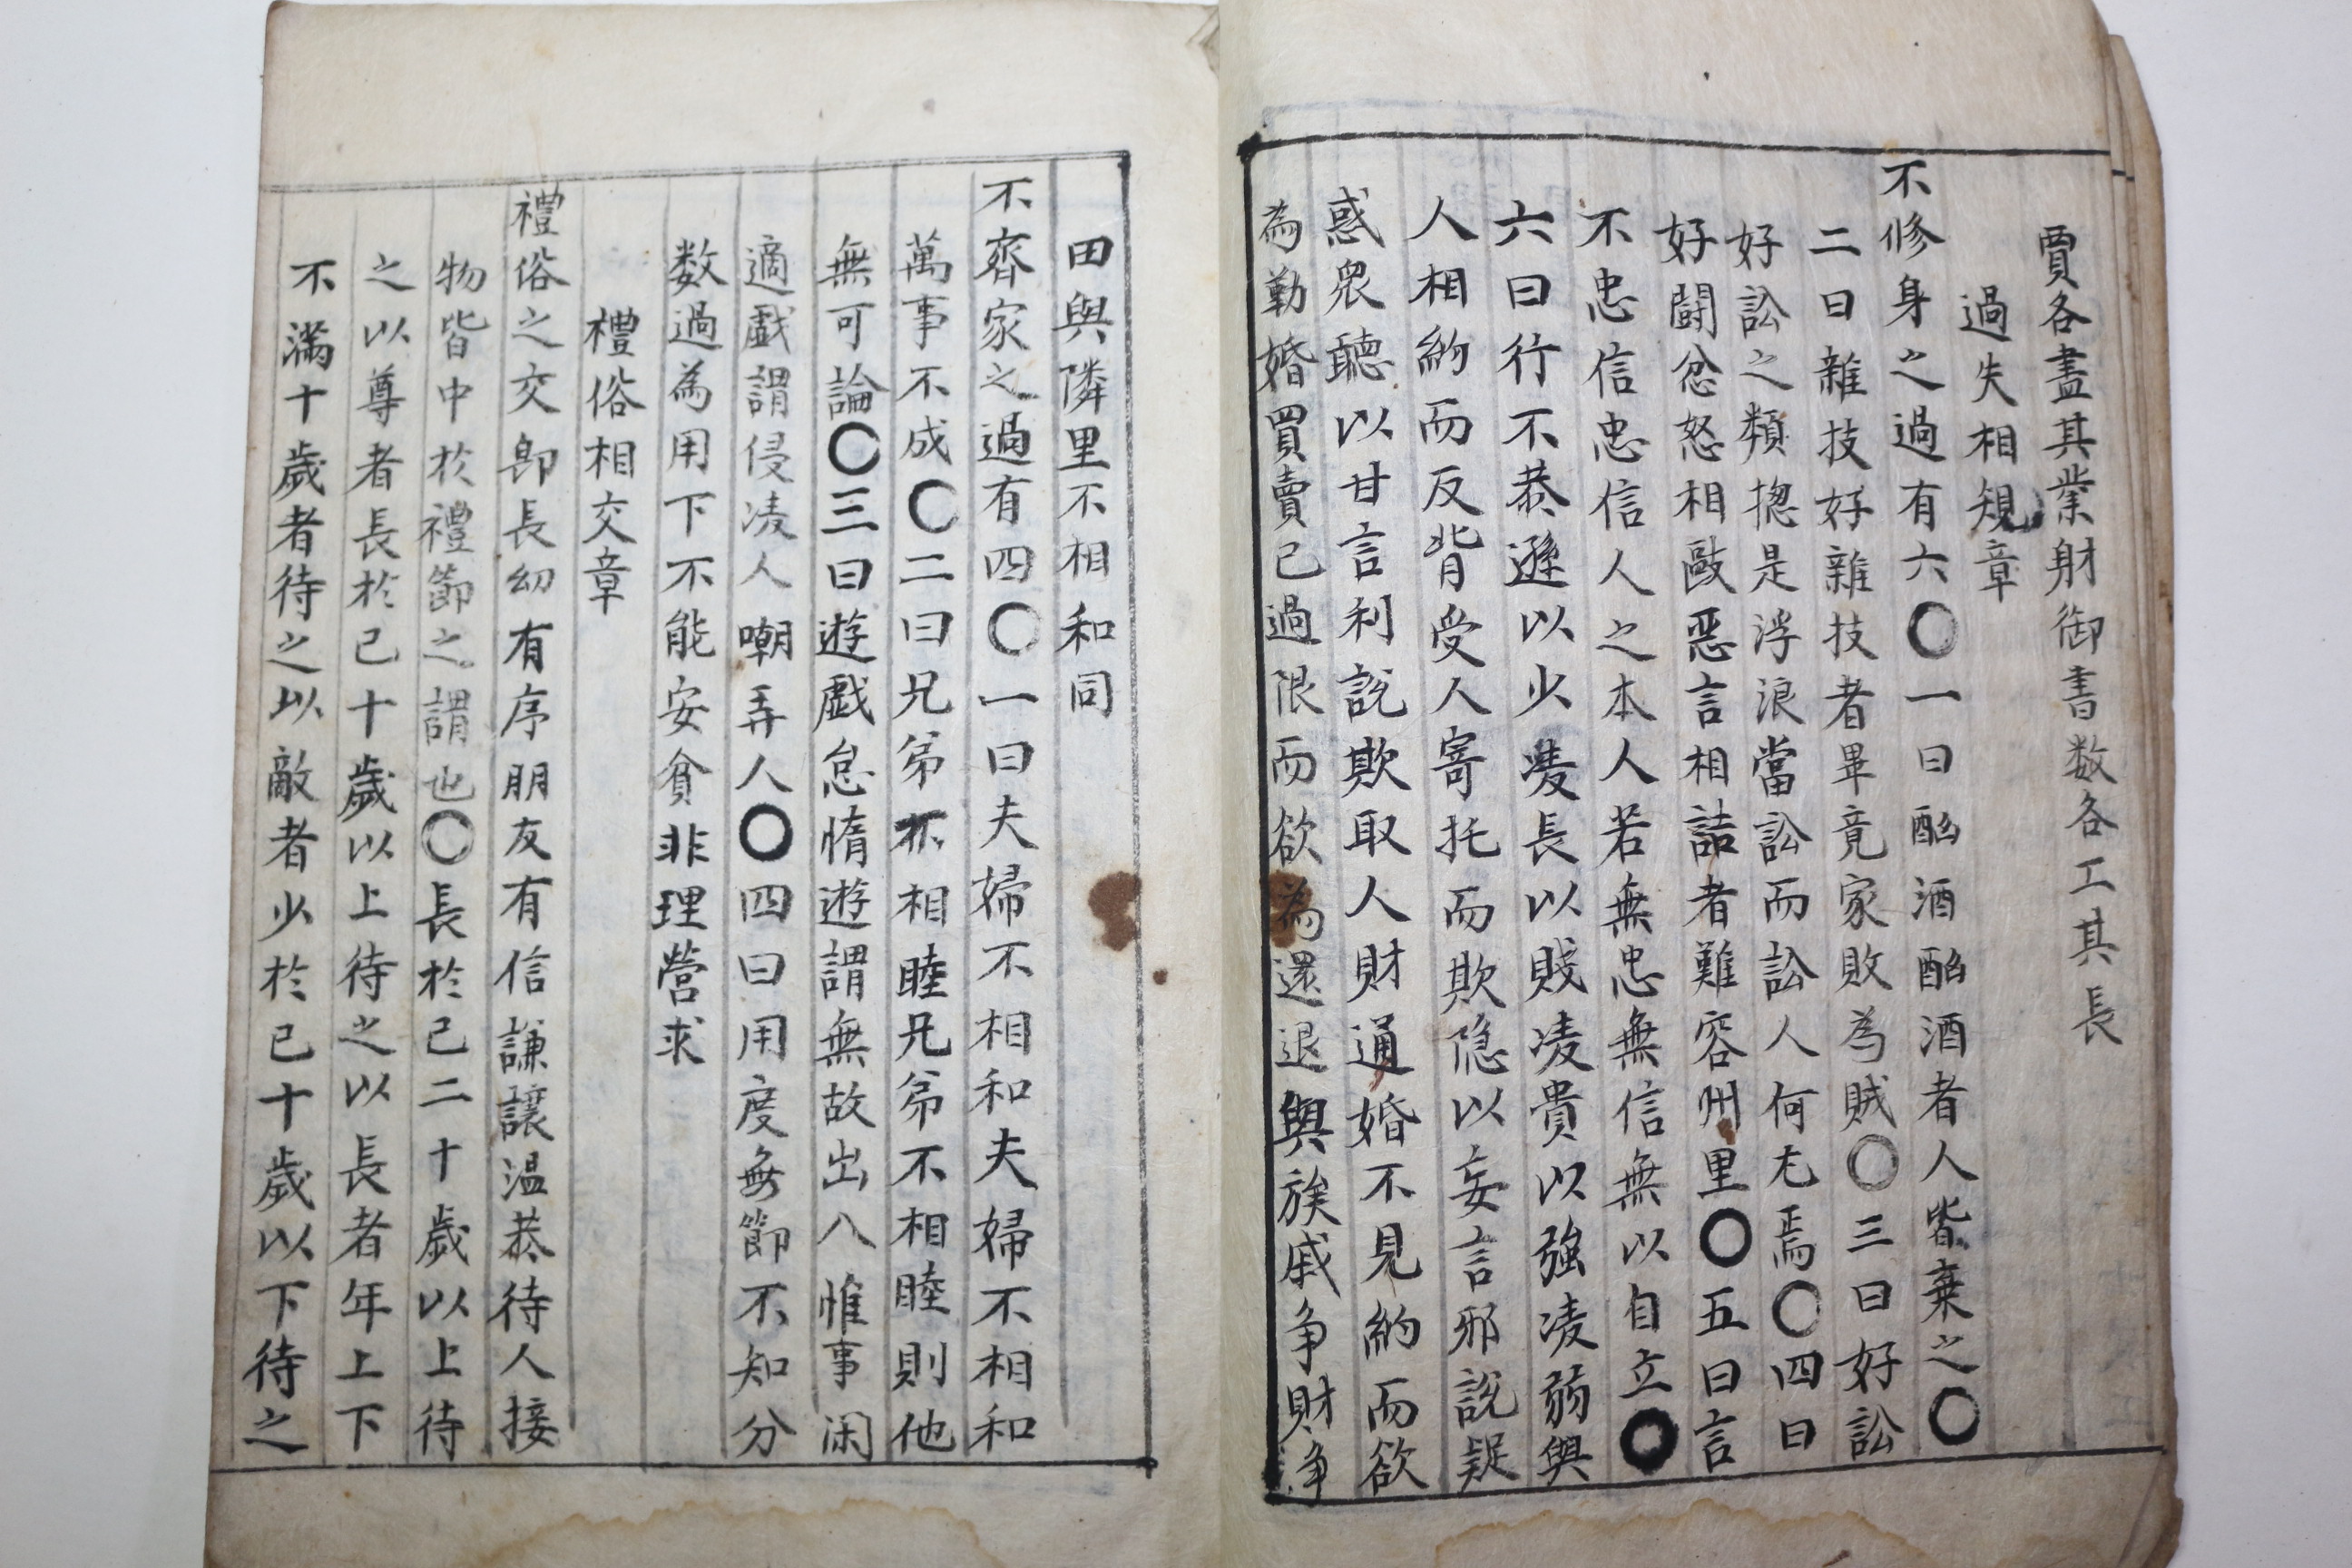 賈各盡其業射御書数各工其長
過失相規章
不修身之過有六〇一曰酗酒酗酒者人皆棄之〇
二曰雜技好雜技者畢竟家敗為賊〇三曰好訟
好訟之類摠是浮浪當訟而訟人何尤焉〇四曰
好鬪忿怒相敺惡言相詰者難容州里〇五曰言
不忠信忠信人之本人若無忠無信無以自立〇
六曰行不恭遜以少凌長以賤凌貴以強凌弱與
人相約而反背受人寄托而欺隐以妄言邪說疑
惑眾聽以甘言利說欺取人財通婚不見約而欲
為勤婚買賣已過限而欲為還退與族戚争財争
田與隣里不相和同
不齊家之過有四〇一曰夫婦不相和夫婦不相和
萬事不成〇二曰兄弟不相睦兄弟不相睦則他
無可論〇三曰遊戲怠惰遊謂無故出入惟事闲
適戲謂侵凌人嘲弄人〇四曰用度無節不知分
数過為用下不能安貧非理營求
禮俗相交章
禮俗之交卽長幼有序朋友有信謙讓温恭待人接
物皆中於禮節之謂也〇長於己二十歲以上待
之以尊者長於己十歲以上待之以長者年上下
不滿十歲者待之以敵者少於己十歲以下待之